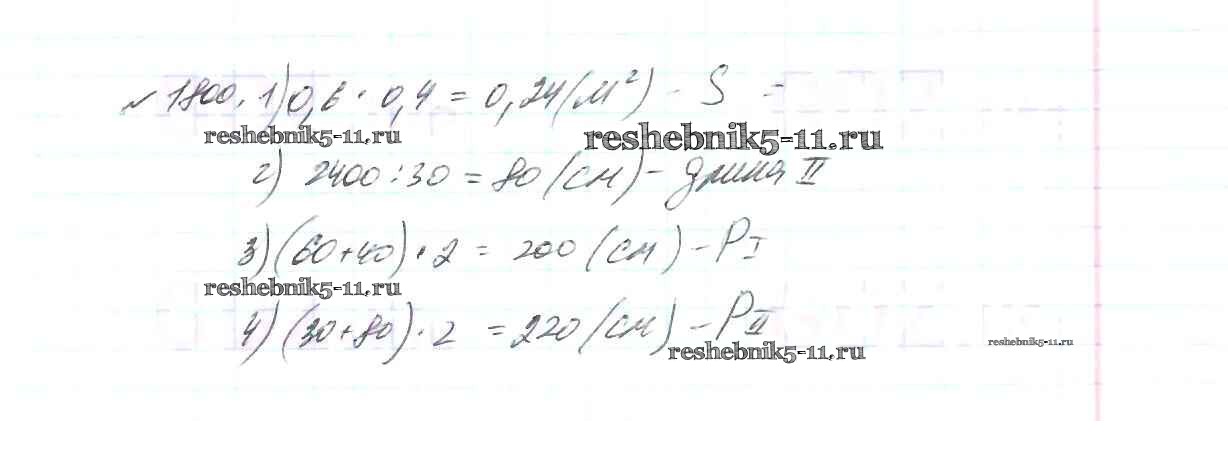 № 1800. 1) 0,6 · 0,4 = 0,24 (м²) - S =
reshebnik5-11.ru reshebnik5-11.ru
2) 2400 : 30 = 80 (см) - длина II
3) (60+40) · 2 = 200 (см) - P I
reshebnik5-11.ru
4) (30+80) · 2 = 220 (см) - P II
reshebnik5-11.ru reshebnik5-11.ru